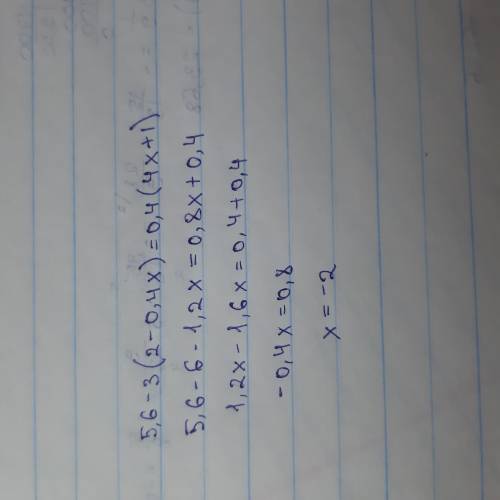 5,6-3(2-0,4x)=0,4(4x+1)
5,6-6-1,2x=0,8x+0,4
1,2x-1,6x=0,4+0,4
-0,4x=0,8
x=-2